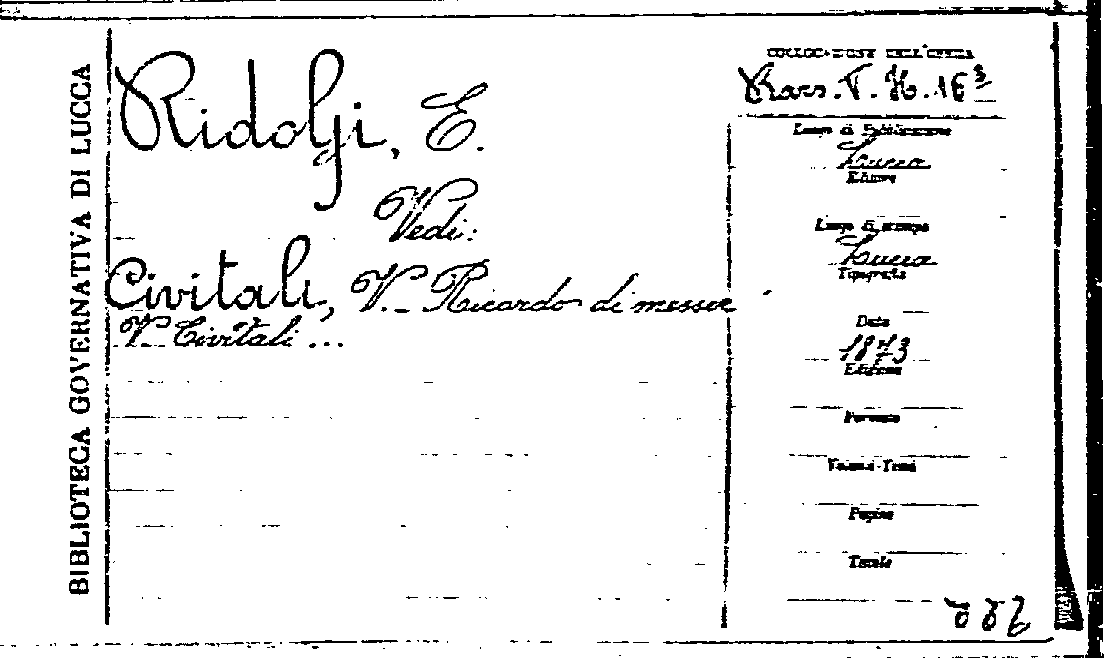 BIBLIOTECA GOVERNATIVA DI LUCCA
Ridolfi, E.
Vedi:
Civitali, V. Ricardo di messer
V. Civitali ...
COLLOCAZIONE DELL'OPERA
H. 16³
Luogo di Pubblicazione
Lucca
Editore
Luogo di stampa
Lucca
Tipografia
Data
1873
Edizione
Formato
Volumi-Tomi
Pagine
Totale